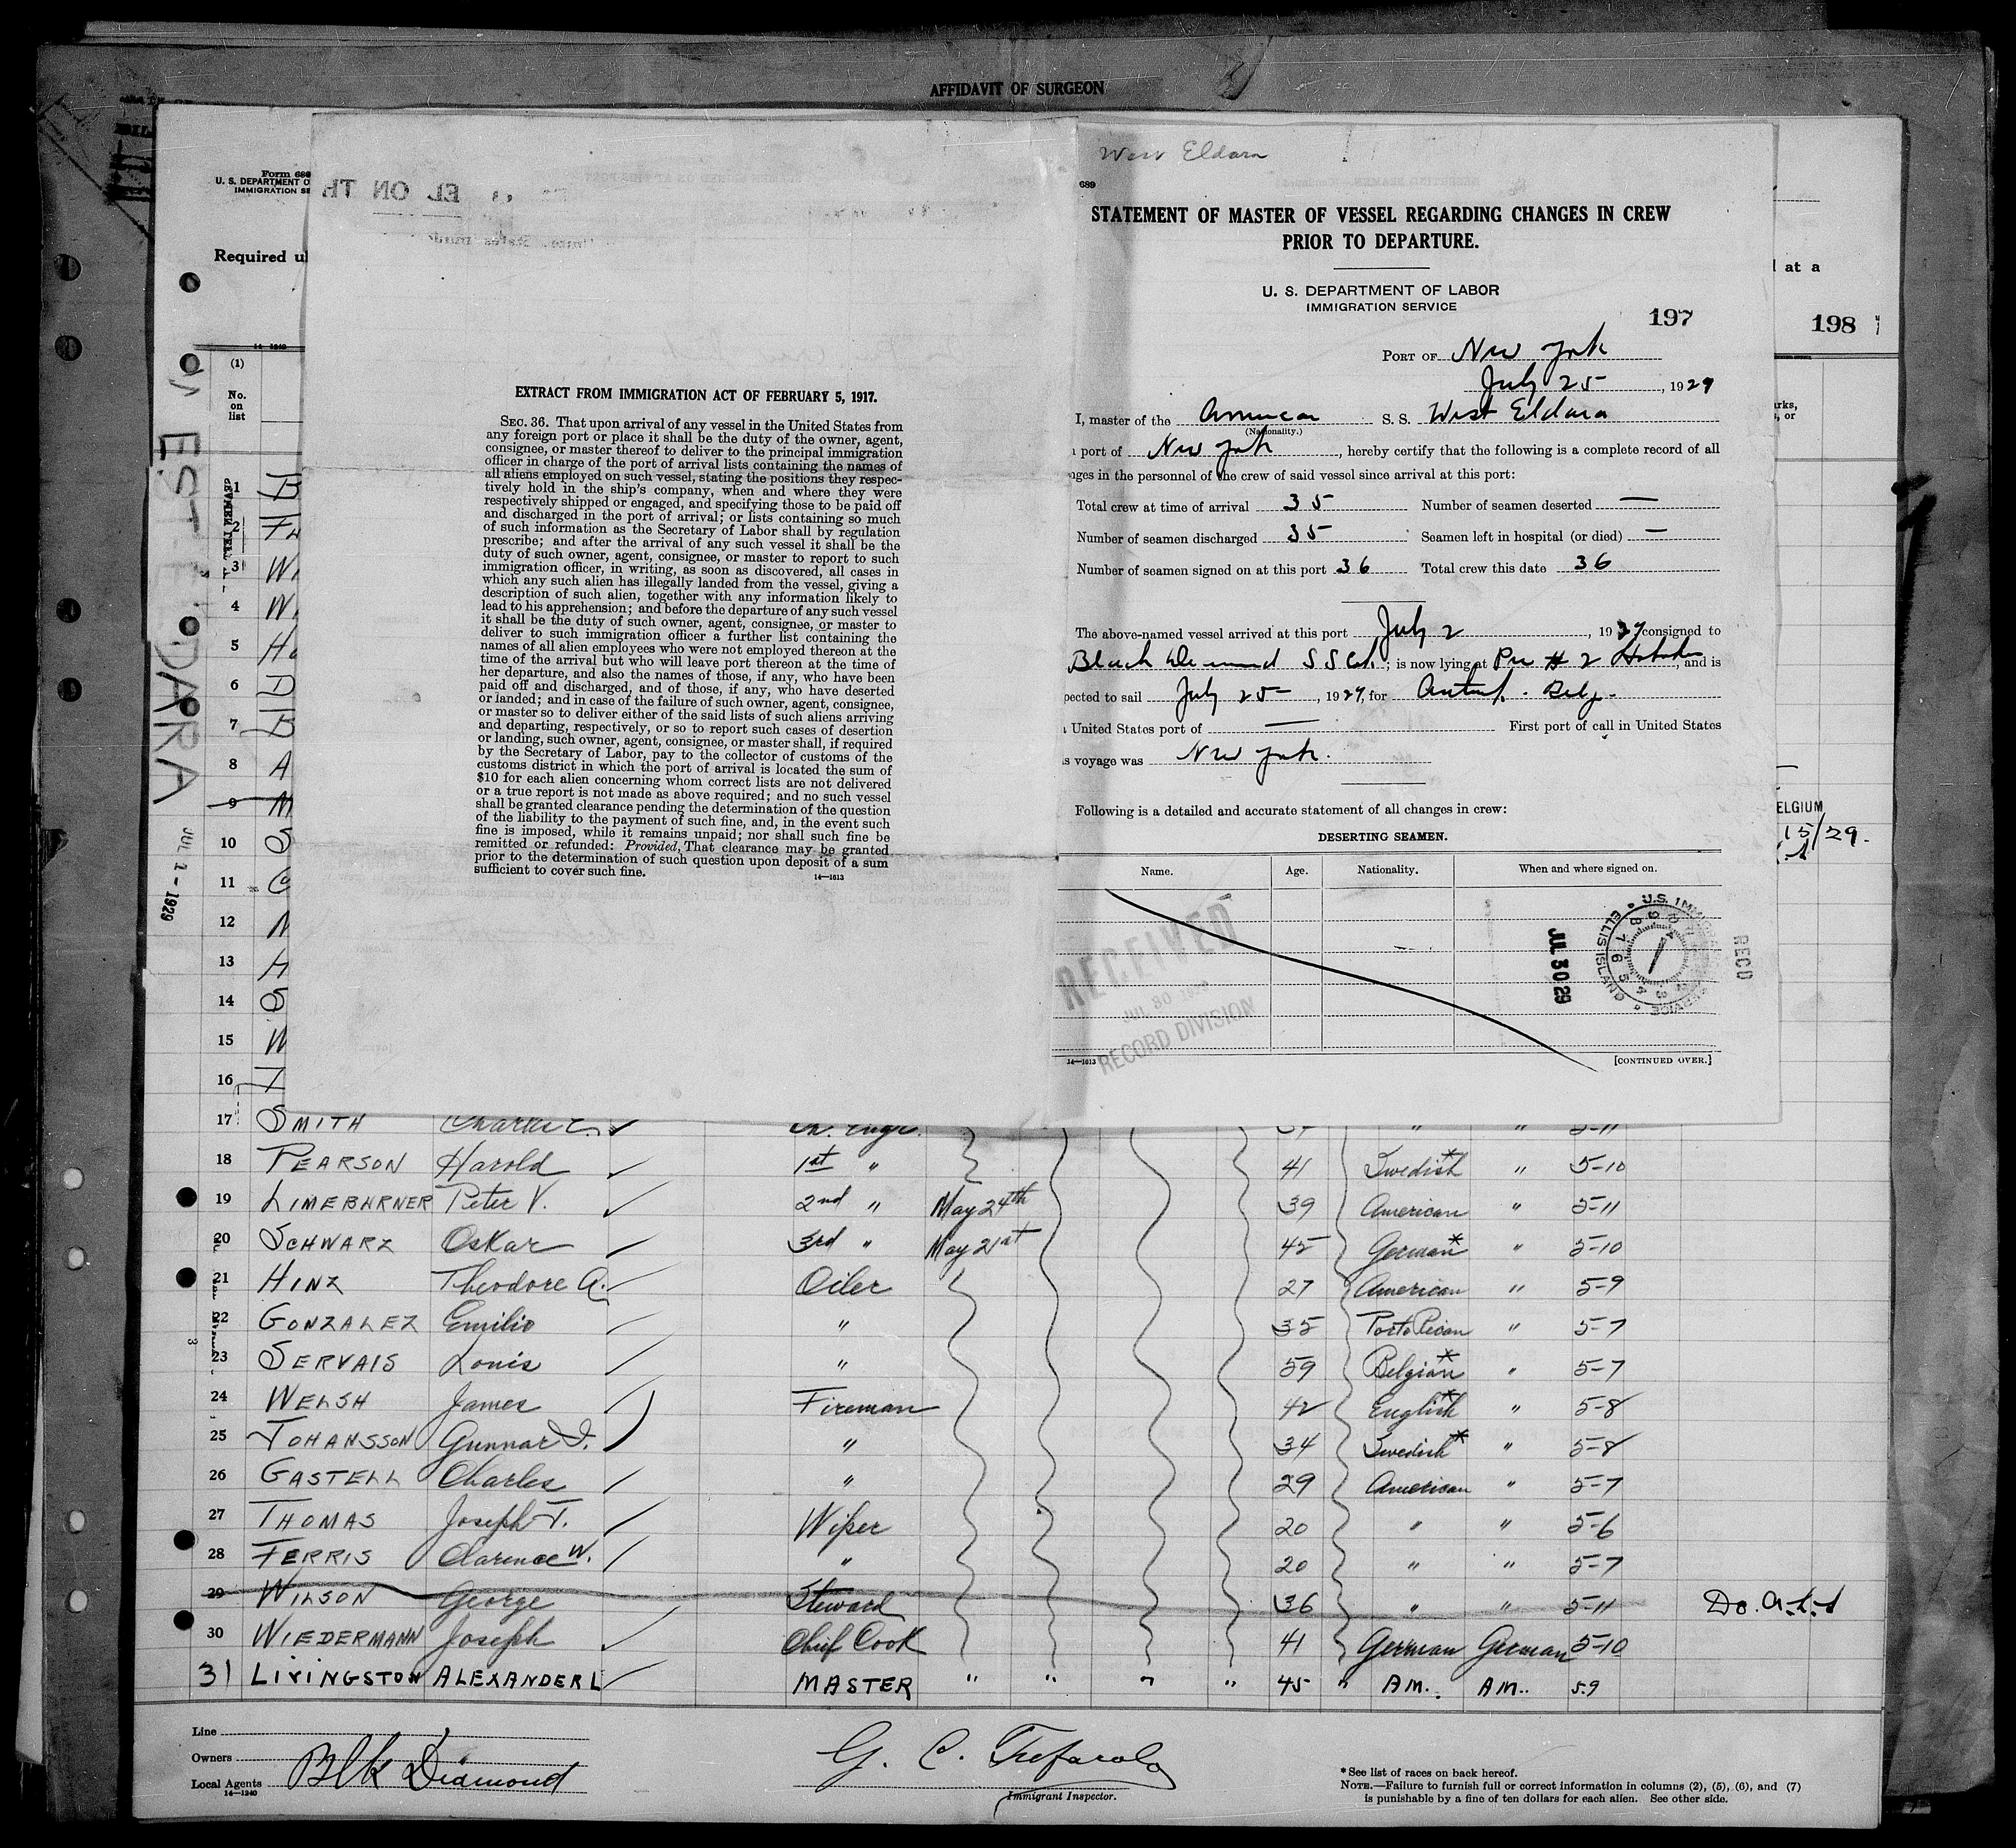 AFFIDAVIT OF SURGEON
Form 689
U. S. DEPARTMENT O
IMMIGRATION SE
Required u
at a
198
(1)
No.
on
list
WEST ELDARA
JUL 1 - 1929
EXTRACT FROM IMMIGRATION ACT OF FEBRUARY 5, 1917.
SEC. 36. That upon arrival of any vessel in the United States from
any foreign port or place it shall be the duty of the owner, agent,
consignee, or master thereof to deliver to the principal immigration
officer in charge of the port of arrival lists containing the names of
all aliens employed on such vessel, stating the positions they respec-
tively hold in the ship's company, when and where they were
respectively shipped or engaged, and specifying those to be paid off
and discharged in the port of arrival; or lists containing so much
of such information as the Secretary of Labor shall by regulation
prescribe; and after the arrival of any such vessel it shall be the
duty of such owner, agent, consignee, or master to report to such
immigration officer, in writing, as soon as discovered, all cases in
which any such alien has illegally landed from the vessel, giving a
description of such alien, together with any information likely to
lead to his apprehension; and before the departure of any such vessel
it shall be the duty of such owner, agent, consignee, or master to
deliver to such immigration officer a further list containing the
names of all alien employees who were not employed thereon at the
time of the arrival but who will leave port thereon at the time of
her departure, and also the names of those, if any, who have been
paid off and discharged, and of those, if any, who have deserted
or landed; and in case of the failure of such owner, agent, consignee,
or master so to deliver either of the said lists of such aliens arriving
and departing, respectively, or so to report such cases of desertion
or landing, such owner, agent, consignee, or master shall, if required
by the Secretary of Labor, pay to the collector of customs of the
customs district in which the port of arrival is located the sum of
$10 for each alien concerning whom correct lists are not delivered
or a true report is not made as above required; and no such vessel
shall be granted clearance pending the determination of the question
of the liability to the payment of such fine, and, in the event such
fine is imposed, while it remains unpaid; nor shall such fine be
remitted or refunded: Provided, That clearance may be granted
prior to the determination of such question upon deposit of a sum
sufficient to cover such fine.
14—1613
West Eldara
689
STATEMENT OF MASTER OF VESSEL REGARDING CHANGES IN CREW
PRIOR TO DEPARTURE.
U. S. DEPARTMENT OF LABOR
IMMIGRATION SERVICE
197
PORT OF New York
July 25, 1929
I, master of the American S. S. West Eldara
(Nationality.)
port of New York, hereby certify that the following is a complete record of all
nges in the personnel of the crew of said vessel since arrival at this port:
Total crew at time of arrival 35 Number of seamen deserted —
Number of seamen discharged 35 Seamen left in hospital (or died) —
Number of seamen signed on at this port 36 Total crew this date 36
The above-named vessel arrived at this port July 2, 1929 consigned to
Black Diamond S S Co.; is now lying at Pier # 2 Hoboken, and is
pected to sail July 25, 1929, for Antwp. Belg.
United States port of — First port of call in United States
s voyage was New York.
Following is a detailed and accurate statement of all changes in crew:
DESERTING SEAMEN.
Name. Age. Nationality. When and where signed on.
RECEIVED
JUL 30
RECORD DIVISION
JUL 30 29
U.S. IMMIGRATION SERVICE ELLIS ISLAND
RECD
14—1613 [CONTINUED OVER.]
ELGIUM
15/29.
1 B
2
3 W
4 W
5 H
6 D
7 B
8 A
9 M
10 S
11
12
13 H
14
15 W
16
17 SMITH Charles E. Ch. Engr. " 5-11
18 PEARSON Harold 1st " 41 Swedish* " 5-10
19 LIMEBURNER Peter V. 2nd " May 24th 39 American " 5-11
20 SCHWARZ Oskar 3rd " May 21st 45 German* " 5-10
21 HINZ Theodore A. Oiler 27 American " 5-9
22 GONZALEZ Emilio " 35 Porto Rican " 5-7
23 SERVAIS Louis " 59 Belgian* " 5-7
24 WELSH James Fireman 42 English* " 5-8
25 JOHANSSON Gunnar I. " 34 Swedish* " 5-8
26 GASTELL Charles " 29 American " 5-7
27 THOMAS Joseph T. Wiper 20 " " 5-6
28 FERRIS Clarence W. " 20 " " 5-7
29 WILSON George Steward 36 " " 5-11 Do.
30 WIEDERMANN Joseph Chief Cook 41 German German 5-10
31 LIVINGSTON ALEXANDER L MASTER " " " " 45 " AM. AM. 5-9
Line
Owners
Local Agents Blk Diamond
14—1240
G. C.
Immigrant Inspector.
* See list of races on back hereof.
NOTE.—Failure to furnish full or correct information in columns (2), (5), (6), and (7)
is punishable by a fine of ten dollars for each alien. See other side.